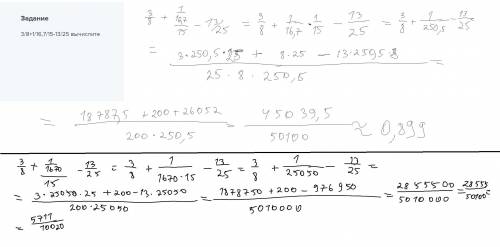 Задание
3/8+1/16,7/15-13/25 вычислите
3/8 + 1/(167/15) - 13/25 = 3/8 + 1/16,7 · 1/15 - 13/25 = 3/8 + 1/250,5 - 13/25
= (3·250,5·25 + 8·25 - 13·250,5·8)/(25·8·250,5) =
= (18787,5 + 200 + 26052)/(200·250,5) = 45039,5/50100 ≈ 0,899
3/8 + 1/(1670/15) - 13/25 = 3/8 + 1/(1670·15) - 13/25 = 3/8 + 1/25050 - 13/25 =
= (3·25050·25 + 200 - 13·25050)/(200·25050) = (1878750 + 200 - 976950)/5010000 = 2855500/5010000 = 28555/50100 =
= 5711/10020